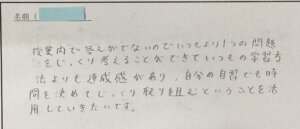 名前( )
授業内で答えがでないのでいつもより1つの問題
をじっくり考えることができていつもの学習方
法よりも達成感があり、自分の自習でも時
間を決めてじっくり取り組むということを活
用していきたいです。